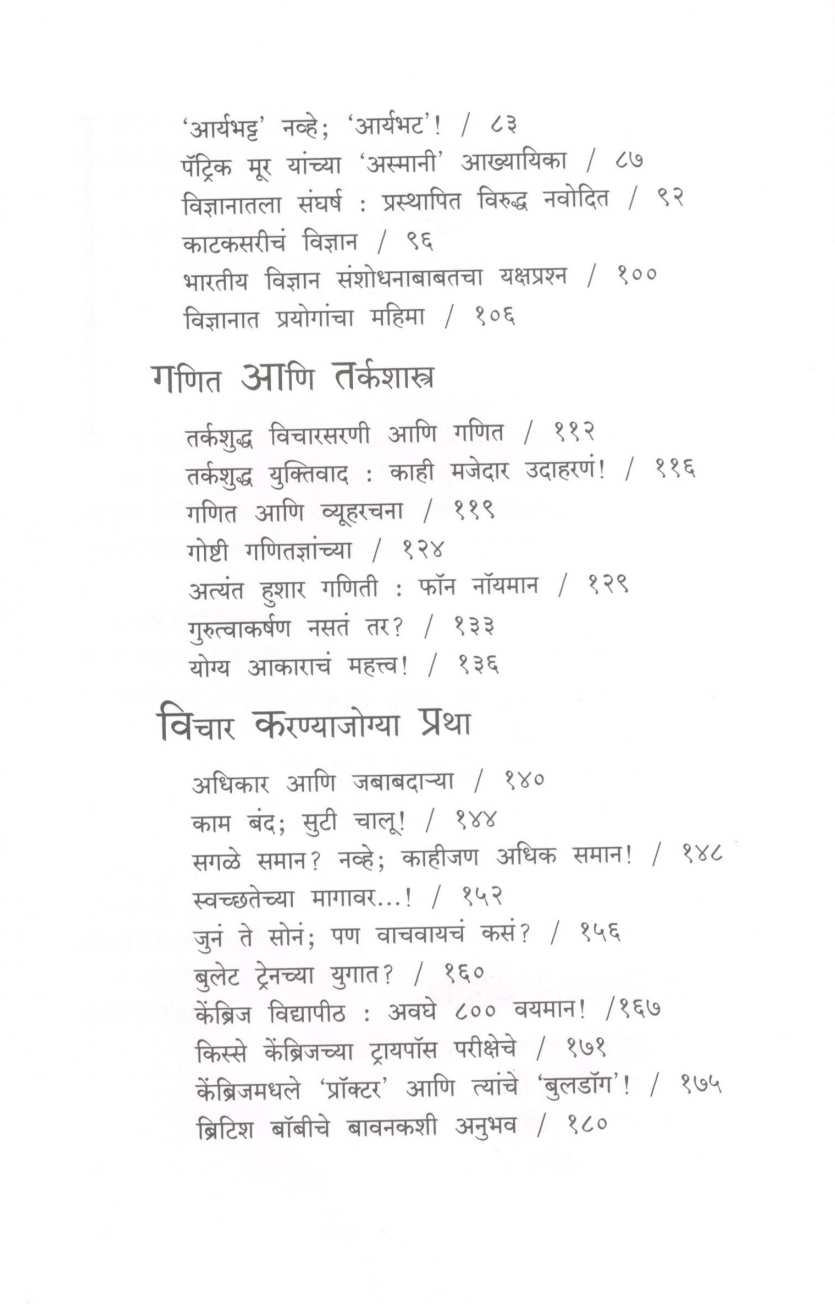 ‘आर्यभट्ट’ नव्हे; ‘आर्यभट’! / ८३
पॅट्रिक मूर यांच्या ‘अस्मानी’ आख्यायिका / ८७
विज्ञानातला संघर्ष : प्रस्थापित विरुद्ध नवोदित / ९२
काटकसरीचं विज्ञान / ९६
भारतीय विज्ञान संशोधनाबाबतचा यक्षप्रश्न / १००
विज्ञानात प्रयोगांचा महिमा / १०६
गणित आणि तर्कशास्त्र
तर्कशुद्ध विचारसरणी आणि गणित / ११२
तर्कशुद्ध युक्तिवाद : काही मजेदार उदाहरणं! / ११६
गणित आणि व्यूहरचना / ११९
गोष्टी गणितज्ञांच्या / १२४
अत्यंत हुशार गणिती : फॉन नॉयमान / १२९
गुरुत्वाकर्षण नसतं तर? / १३३
योग्य आकाराचं महत्त्व! / १३६
विचार करण्याजोग्या प्रथा
अधिकार आणि जबाबदाऱ्या / १४०
काम बंद; सुटी चालू! / १४४
सगळे समान? नव्हे; काहीजण अधिक समान! / १४८
स्वच्छतेच्या मागावर...! / १५२
जुनं ते सोनं; पण वाचवायचं कसं? / १५६
बुलेट ट्रेनच्या युगात? / १६०
केंब्रिज विद्यापीठ : अवघे ८०० वयमान! /१६७
किस्से केंब्रिजच्या ट्रायपॉस परीक्षेचे / १७१
केंब्रिजमधले ‘प्रॉक्टर’ आणि त्यांचे ‘बुलडॉग’! / १७५
ब्रिटिश बॉबीचे बावनकशी अनुभव / १८०